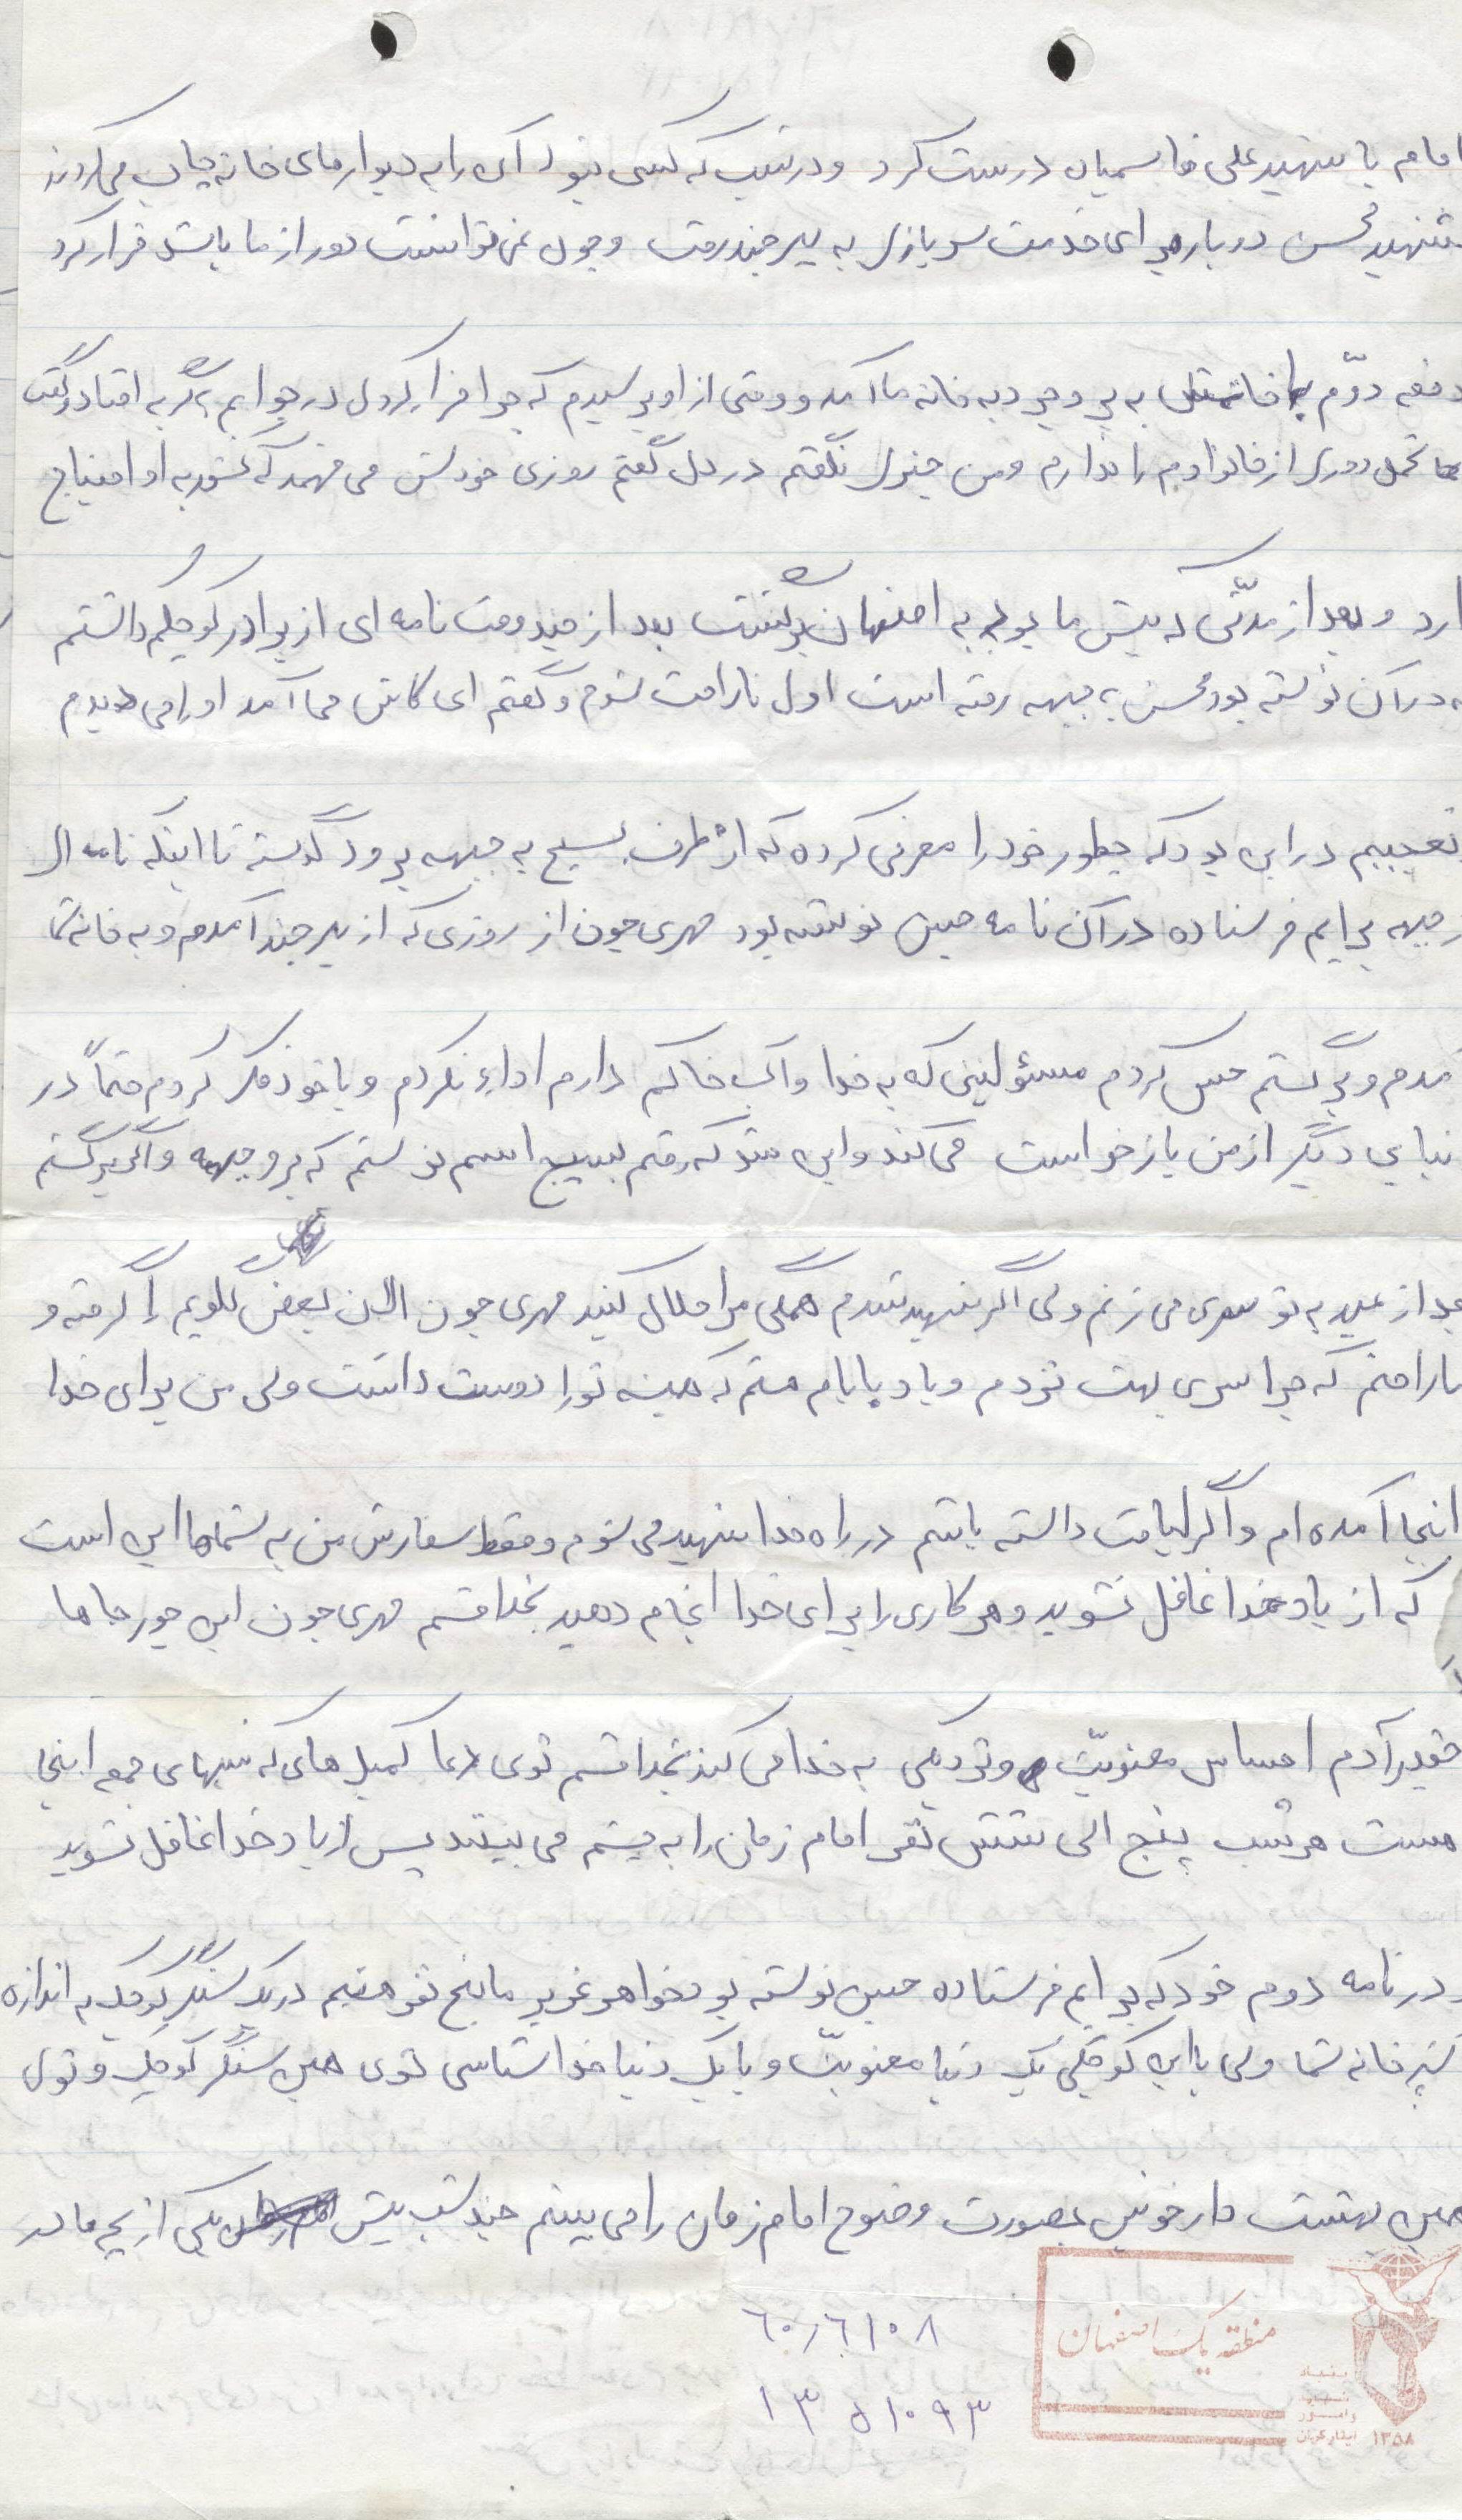 امام با شهید علی قاسمیان درست کرد و در شب که کسی نبود آن را به دیوارهای خانه چاپ می‌کردند
شهید محسن دوباره برای خدمت سربازی به بیرجند رفت و چون نمی توانست دور از ما باشد فرار کرد
دفعه دوّم به پر و جرد به خانه ما آمد و وقتی از او پرسیدم که چرا فرار کردی در جوابم به گریه افتاد و گفت
تحمل دوری از خانواده‌ام را ندارم و من چیزی نگفتم در دل گفتم روزی خودش می فهمد که کشور به او احتیاج
دارد و بعد از مدّتی که پیش ما بود به اصفهان برگشت بعد از چند وقت نامه ای از برادر کوچکم داشتم
که در آن نوشته بود محسن به جبهه رفته است اول ناراحت شدم و گفتم ای کاش می آمد او را می دیدم
تعجبم در این بود که چطور خود را معرفی کرده که از طرف بسیج به جبهه برود گذشته تا اینکه نامه ای
از جبهه برایم فرستاده در آن نامه چنین نوشته بود مهری جون از روزی که از بیرجند آمدم و به خانه شما
آمدم و برگشتم حس کردم مسئولیتی که به خدا و آب خاکم دارم اداء نکردم و با خود فکر کردم حتماً در
دنیای دیگر از من بازخواست می کند و این شد که رفتم بسیج اسم نوشتم که برم جبهه و اگر برگشتم
بعد از عید به تو سری می زنم ولی اگر شهید شدم همگی مرا حلال کنید مهری جون الان بغض گلویم را گرفته و
ناراحتم که چرا سری بهت نزدم و یاد بابایم هستم که همیشه تو را دوست داشت ولی من برای خدا
اینجا آمده ام و اگر لیاقت داشته باشم در راه خدا شهید می شوم و فقط سفارش من به شماها این است
که از یاد خدا غافل نشوید و هر کاری را برای خدا انجام دهید بخدا قسم مهری جون این جور جاها
چقدر آدم احساس معنویّت و نزدیکی به خدا می کند بخدا قسم توی دعا کمیل های که شبهای جمعه اینجا
هست هر شب پنج الی شش نفر امام زمان را به چشم می بینند پس از یاد خدا غافل نشوید
در نامه دوم خود که برایم فرستاده چنین نوشته بود خواهر عزیز ما پنج نفر هستیم در یک سنگر کوچک به اندازه
آشپزخانه شما ولی با این کوچکی یک دنیا معنویّت و با یک دنیا خداشناسی توی همین سنگر کوچک و توی
همین بهشت دارخوین بصورت وضوح امام زمان را می بینم چند شب پیش یکی از بچه ها در
۶۰/۶۱۰۸
۱۳۵۱۰۹۳
منطقه یک اصفهان
بنیاد
شهید
و امور
ایثارگران
۱۳۵۸